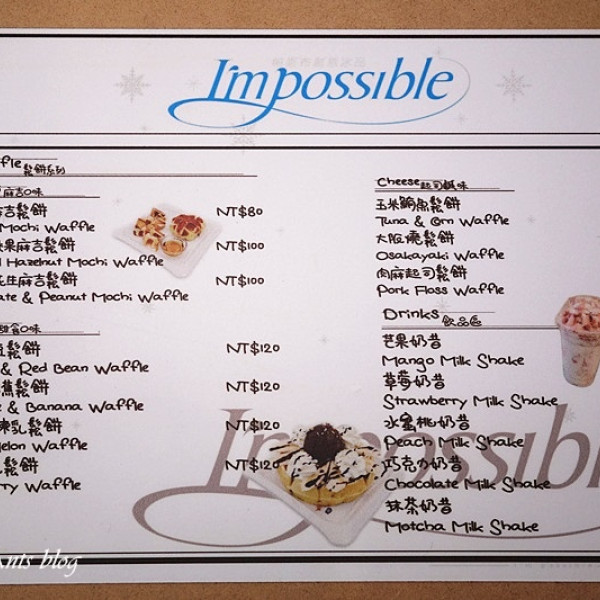 I'mpossible
鬆餅系列
NT$80
Mochi Waffle
NT$100
Hazelnut Mochi Waffle
NT$100
& Peanut Mochi Waffle
鬆餅 NT$120
& Red Bean Waffle
鬆餅 NT$120
& Banana Waffle
煉乳鬆餅 NT$120
Waffle
鬆餅 NT$120
Waffle
Cheese起司鹹味
玉米鮪魚鬆餅
Tuna & Corn Waffle
大阪燒鬆餅
Osakayaki Waffle
肉麻起司鬆餅
Pork Floss Waffle
Drinks飲品區
芒果奶昔
Mango Milk Shake
草莓奶昔
Strawberry Milk Shake
水蜜桃奶昔
Peach Milk Shake
巧克力奶昔
Chocolate Milk Shake
抹茶奶昔
Motcha Milk Shake
I'mpossible
blog